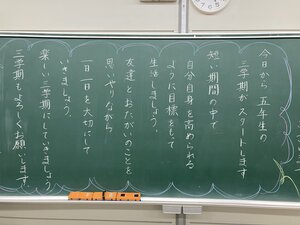 今日から五年生の
三学期がスタートします
短い期間の中で
自分自身を高められる
ように目標をもって
生活しましょう。
友達とおたがいのことを
思いやりながら
一日一日を大切にして
いきましょう。
楽しい三学期にしていきましょう
三学期もよろしくお願いします。